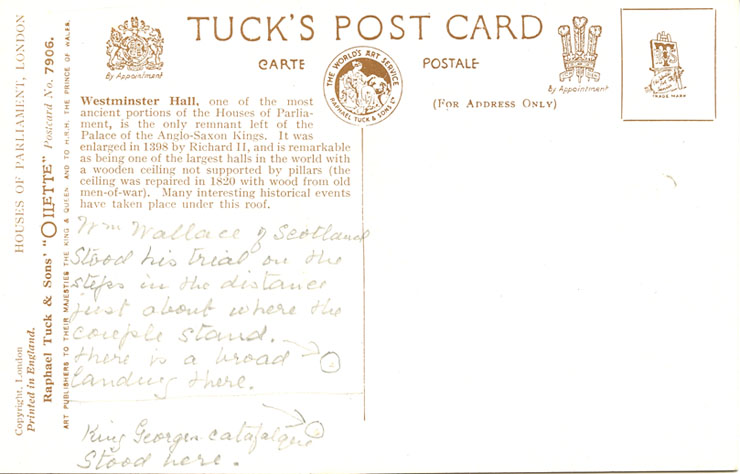 TUCK'S POST CARD
CARTE POSTALE
By Appointment
THE WORLD'S ART SERVICE
RAPHAEL TUCK & SONS Ld
By Appointment
TRADE MARK
(FOR ADDRESS ONLY)
HOUSES OF PARLIAMENT, LONDON
Copyright, London
Printed in England.
Raphael Tuck & Sons' "OILETTE" Postcard No. 7906.
ART PUBLISHERS TO THEIR MAJESTIES THE KING & QUEEN AND TO H.R.H. THE PRINCE OF WALES.
Westminster Hall, one of the most
ancient portions of the Houses of Parlia-
ment, is the only remnant left of the
Palace of the Anglo-Saxon Kings. It was
enlarged in 1398 by Richard II, and is remarkable
as being one of the largest halls in the world with
a wooden ceiling not supported by pillars (the
ceiling was repaired in 1820 with wood from old
men-of-war). Many interesting historical events
have taken place under this roof.
Wm Wallace of Scotland
Stood his trial on the
steps in the distance
just about where the
couple stand.
there is a broad
landing there.
King Georges catafalque
Stood here.